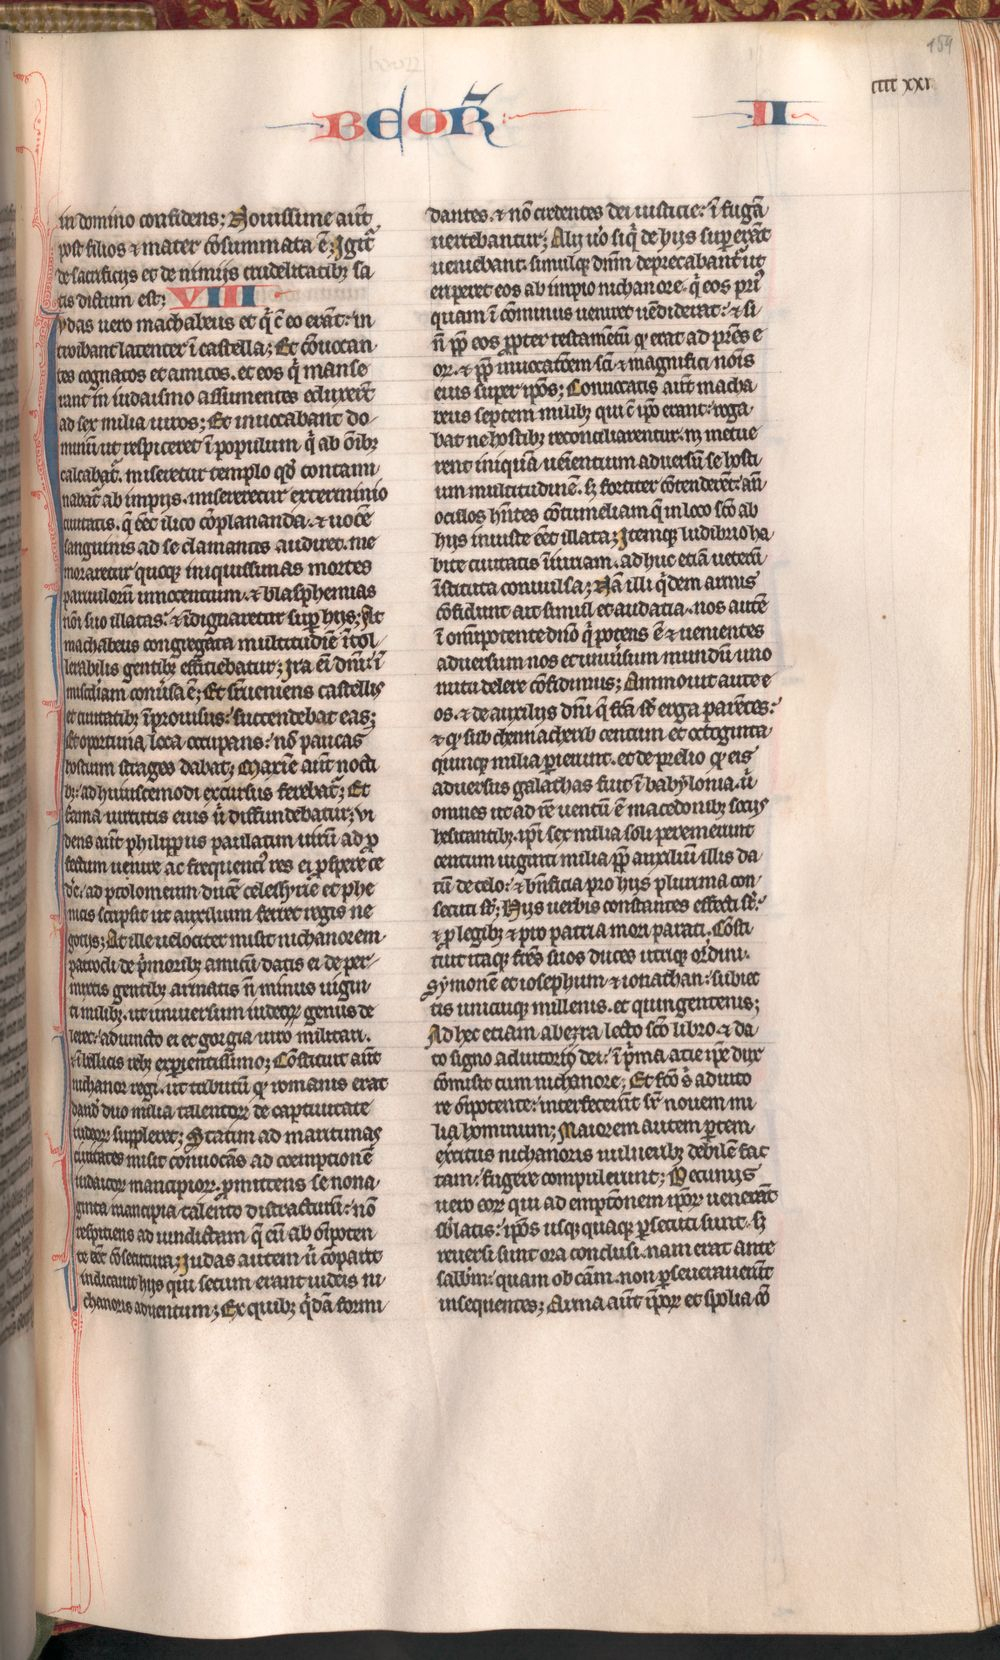 154
cccc xxi
BEOR̄ II
in domino confidens; Nouissime aūt
post filios & mater cōsummata ē; Igit̄
de sacrificijs et de nimijs crudelitatibꝫ sa
tis dictum est; VIII
ydas uero machabeus et q̄ c̄ eo erāt: in
troibant latenter ī castella; Et cōuocan
tes cognatos et amicos. et eos q̄ manse
rant in iudaismo assumentes eduxer̄t
ad sex milia uiros; Et inuocabant do
minū ut respiceret ī populum q̄ ab oībꝫ
calcabat̄. misereretur templo qd̄ contami
nabat̄ ab impijs. misereretur exterminio
ciuitatis. q̄ eēt ilico cōplananda. & uocē
sanguinis ad se clamantis audiret. me
moraretur quoqꝫ iniquissimas mortes
paruulorū innocentium. & blasphemias
noī suo illatas: & īdignaretur sup hijs; At
machabeus congregata multitudīe ītol
lerabilis gentibꝫ efficiebatur; Ira eī dnī ī
misc̄diam conūsa ē; Et sup̄ueniens castellis
et ciuitatibꝫ īprouisus: succendebat eas;
Et oportuna loca occupans: nō paucas
hostium strages dabat; Maxīe aūt nocti
bꝫ: ad huiuscemodi excursus ferebat̄; Et
fama uirtutis eius ū diffundebatur; Vi
dens aūt philippus paulatim uirū ad ꝓ
fectum uenire ac frequent̉ res ei ꝓspere ce
de᷑: ad ptolomeum ducē celesyrie et phe
nicis scripsit ut auxilium ferret regis ne
gotijs; At ille uelociter misit nichanorem
patrocli de p̄moribꝫ amicū. datis ei de per
mixtis gentibꝫ armatis n̄ minus uigin
ti milibꝫ. ut uniuersum iudeoꝝ genus de
leret: adiuncto ei et gorgia uiro militari.
& ī bellicis rebꝫ exꝑientissimo; Cōstituit aūt
nichanor regi. ut tributū qꝫ romanis erat
dandū duo milia talentoꝝ de captiuitate
iudeoꝝ suppleret; Statim ad maritimas
ciuitates misit conuocās ad coemptionē
iudaicoꝝ mancipioꝝ. ꝓmittens se nona
ginta mancipia talento distracturū: nō
respiciens ad uindictam q̄ eū ab oīpoten
te eēt cōsecutura; Iudas autem ū cōperit
indicauit hijs qui secum erant iudeis ni
chanoris aduentum; Ex quibꝫ q̄dā formi
dantes. & nō credentes dei iusticie: ī fugā
uertebantur; Alij u̓o si q̄ de hijs sup erāt
ueniebant. simulqꝫ dnm̄ deprecabant̄ ut
eriperet eos ab impio nichanore. q̄ eos pri
quam ī cōminus ueniret uēdiderat: & si
n̄ ꝓp̄ eos ꝓpter testamentū qꝫ erat ad pr̄es e
oꝝ. & ꝓp̄ inuocatōem sc̄i & magnifici noīs
eius super ip̄os; Conuocatis aūt macha
beus septem milibꝫ qui c̄ ip̄o erant: roga
bat ne hostibꝫ reconciliarentur. nꝫ metue
rent iniquā uenientium aduersū se hosti
um multitudinē. sꝫ fortiter cōtenderēt: an̄
oculos hn̄tes cōtumeliam q̄ in loco sc̄o ab
hijs iniuste eēt illata; Itemqꝫ ludibrio ha
bite ciuitatis īiuriam. adhuc etiā ueterū
īstituta conuulsa; Nā illi q̄dem armis
cōfidunt ait simul et audatia. nos autē
ī omīpotente dnō q̄ potens ē & uenientes
aduersum nos et uniūsum mundū uno
nutu delere cōfidimus; Ammonuit aute e
os. & de auxilijs dnī q̄ fc̄a st̄ erga parētes:
& qꝫ sub chennacherib centum et octoginta
quinqꝫ milia ꝑierunt. et de prelio qꝫ eis
aduersus galathas fuit ī babylonia. ū
omnes ut ad rē uentū ē macedonibꝫ socijs
hesitantibꝫ. ip̄i sex milia soli peremerunt
centum uiginti milia ꝓp̄ auxiliū illis da
tū de celo: & bn̄ficia pro hijs plurima con
secuti st̄; Hijs uerbis constantes effecti st̄:
& ꝓ legibꝫ & pro patria mori parati. Cōsti
tuit itaqꝫ fr̄es suos duces utriqꝫ ordini.
Symonē et iosephum & ionathan: subiec
tis unicuiqꝫ millenis. et quingentenis;
Ad hec etiam ab ezra lecto sc̄o libro. & da
to signo adiutorij dei: ī p̄ma acie ip̄e dux
cōmisit cum nichanore; Et fc̄o s̄ adiuto
re oīpotente: interfecerūt sr̄ nouem mi
lia hominum; Maiorem autem ꝑtem
exercitus nichanoris uulneribꝫ debilē fac
tam: fugere compulerunt; Pecunijs
uero eoꝝ qui ad emptōnem ip̄oꝝ uenerāt
sb̄latis: ip̄os usqꝫquaqꝫ ꝑsecuti sunt. sꝫ
reuersi sunt ora conclusi. nam erat ante
sabb̄m: quam ob cām. non ꝑseuerauerūt
insequentes; Arma aūt ip̄oꝝ et spolia cō